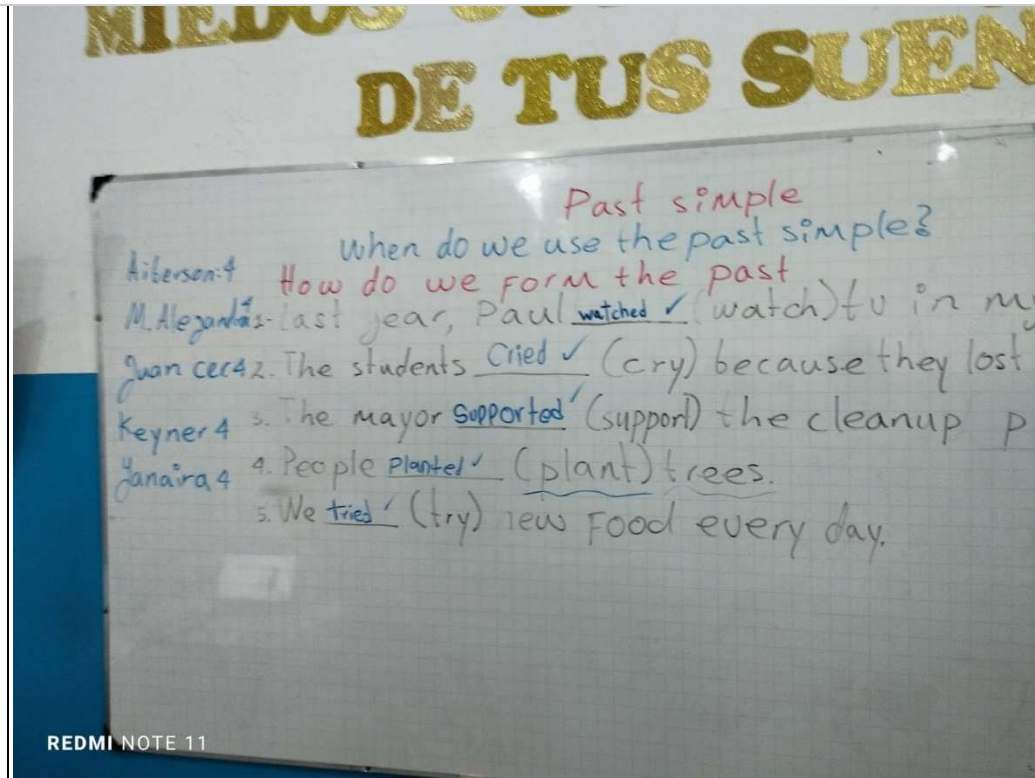 MIEDOS
DE TUS SUEÑ
Past simple
When do we use the past simple?
How do we form the past
Aiberson: 4
M. Alejandra 4
Juan cer 4
Keyner 4
Yanaira 4
1. Last year, Paul watched ✓ (watch) tv in my
2. The students Cried ✓ (cry) because they lost
3. The mayor Supported ✓ (support) the cleanup p
4. People Planted ✓ (plant) trees.
5. We tried ✓ (try) new Food every day.
REDMI NOTE 11